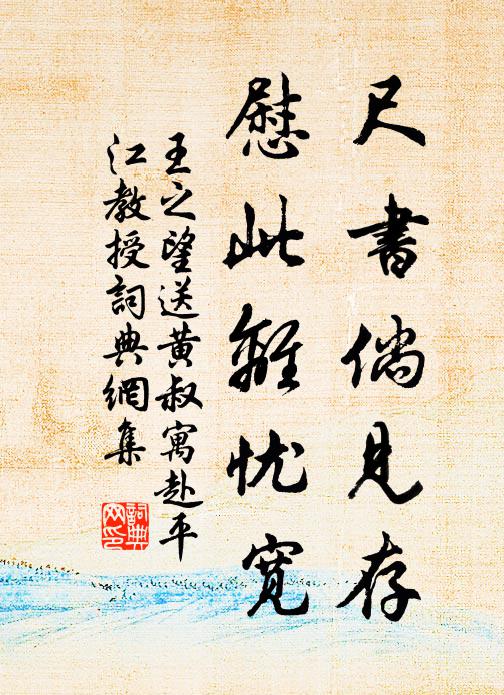 尺書倘見存
慰此離忧寬
王之望送黄叔寓赴平
江教授詞典網集
詞典网印